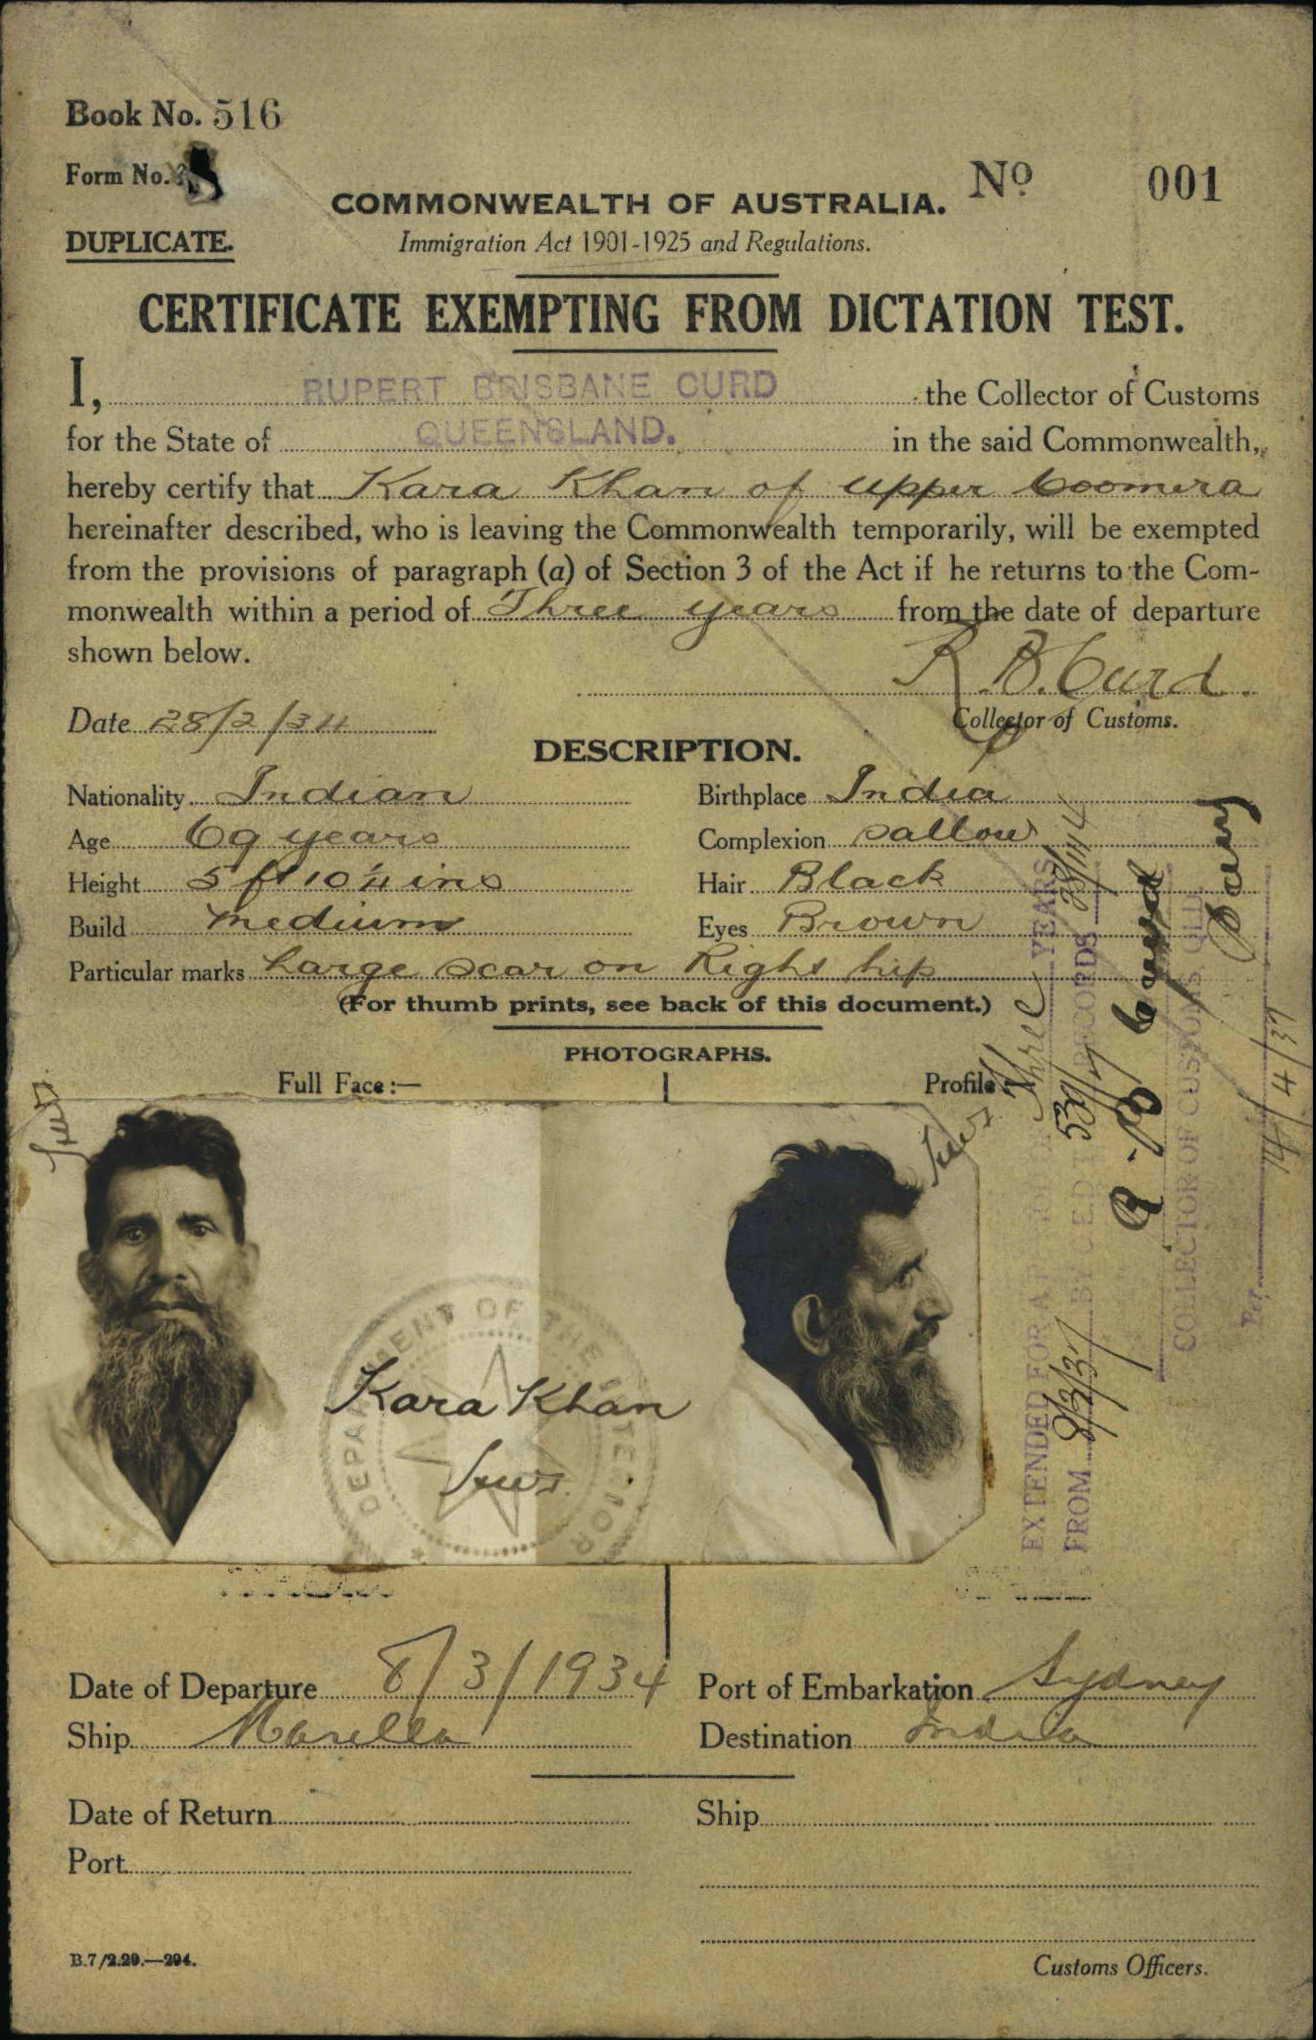 Book No. 516
Form No.
DUPLICATE.
No 001
COMMONWEALTH OF AUSTRALIA.
Immigration Act 1901-1925 and Regulations.
CERTIFICATE EXEMPTING FROM DICTATION TEST.
I, RUPERT BRISBANE CURD the Collector of Customs
for the State of QUEENSLAND. in the said Commonwealth,
hereby certify that Kara Khan of Upper Coomera
hereinafter described, who is leaving the Commonwealth temporarily, will be exempted
from the provisions of paragraph (a) of Section 3 of the Act if he returns to the Com-
monwealth within a period of Three years from the date of departure
shown below.
R. B. Curd.
Date 28/2/34 Collector of Customs.
DESCRIPTION.
Nationality Indian Birthplace India
Age 69 years Complexion Sallow
Height 5 ft 10 ins Hair Black
Build Medium Eyes Brown
Particular marks Large scar on Right hip
(For thumb prints, see back of this document.)
PHOTOGRAPHS.
Full Face:— Profile:—
DEPARTMENT OF THE INTERIOR
Kara Khan
EXTENDED FOR A PERIOD OF Three YEARS
FROM 8/3/37 BY C.E.D.T. RECORDS
R. B. Curd
COLLECTOR OF CUSTOMS, QLD.
Per
14/4/37
Date of Departure 8/3/1934 Port of Embarkation Sydney
Ship Marella Destination India
Date of Return Ship
Port
B.7/2.29.—294. Customs Officers.